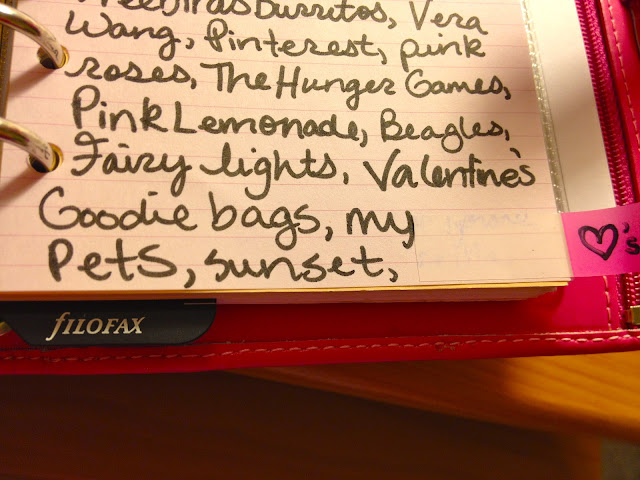 Freebirds Burritos, Vera
Wang, Pinterest, pink
roses, The Hunger Games,
Pink Lemonade, Beagles,
Fairy lights, Valentine's
Goodie bags, my
Pets, sunset,
♡'s
FILOFAX